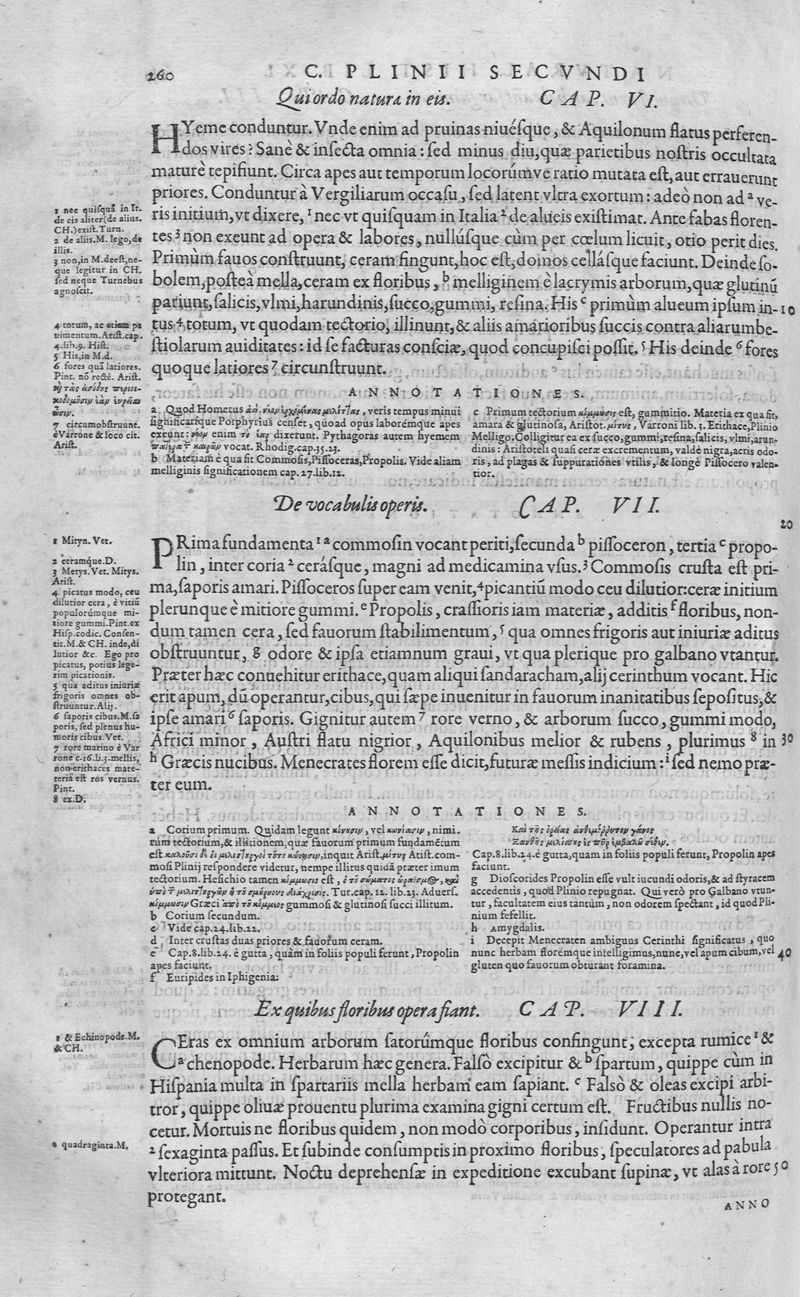 260
C. PLINII SECVNDI
Qui ordo natura in eis. CAP. VI.
HYeme conduntur. Vnde enim ad pruinas niuésque, & Aquilonum flatus perferen-
dos vires? Sanè & insecta omnia: sed minus diu, quæ parietibus nostris occultata
maturè tepifiunt. Circa apes aut temporum locorúmve ratio mutata est, aut errauerunt
priores. Conduntur à Vergiliarum occasu, sed latent vltra exortum: adeò non ad a ve-
ris initium, vt dixere, 1 nec vt quisquam in Italia 2 de alueis existimat. Ante fabas floren-
tes 3 non exeunt ad opera & labores, nullúsque cùm per cœlum licuit, otio perit dies.
Primùm fauos construunt, ceram fingunt, hoc est, domos cellásque faciunt. Deinde so-
bolem, posteà mella, ceram ex floribus, b melliginem è lacrymis arborum, quæ glutinū
pariunt, salicis, vlmi, harundinis, succo, gummi, resina. His c primùm alueum ipsum in- 10
tus 4 totum, vt quodam tectorio, illinunt, & aliis amarioribus succis contra aliarum be-
stiolarum auiditates: id se facturas consciæ, quod concupisci possit. 5 His deinde 6 fores
quoque latiores 7 circunstruunt.
1 nec quisquā in It.
de eis aliter (de alius.
CH.) exist. Turn.
2 de aliis. M. lego, de
illis.
3 non, in M. deest, ne-
que legitur in CH.
sed neque Turnebus
agnoscit.
4 totum, ac etiam pa
uimentum. Arist. cap.
4. lib. 9. Hist.
5 His, in M. d.
6 fores quā latiores.
Pint. nō rectè. Arist.
7 circumobstruunt.
è Varrone & loco cit.
Arist.
ANNOTATIONES.
a Quod Homerus, veris tempus minui
significaríque Porphyrius censet, quoad opus laborémque apes
exeunt: enim dixerunt. Pythagoras autem hyemem
vocat. Rhodig. cap. 35. 23.
b Materiam è qua fit Commosis, Pissoceras, Propolis. Vide aliam
melliginis significationem cap. 27. lib. 12.
c Primum tectorium κόμμωσις est, gummitio. Materia ex qua fit,
amara & glutinosa, Aristot. μίτυς, Varroni lib. 3. Erithace, Plinio
Melligo. Colligitur ea ex succo, gummi, resina, salicis, vlmi, arun-
dinis: Aristoteli quasi ceræ excrementum, valdè nigra, acris odo-
ris, ad plagas & suppurationes vtilis, & longè Pissocero valen-
tior.
De vocabulis operis. CAP. VII.
20
PRima fundamenta 1 a commosin vocant periti, secunda b pissoceron, tertia c propo-
lin, inter coria 2 cerásque, magni ad medicamina vsus. 3 Commosis crusta est pri-
ma, saporis amari. Pissoceros super eam venit, 4 picantiū modo ceu dilutior: ceræ initium
plerunque è mitiore gummi. e Propolis, crassioris iam materiæ, additis f floribus, non-
dum tamen cera, sed fauorum stabilimentum, 5 qua omnes frigoris aut iniuriæ aditus
obstruuntur, g odore & ipsa etiamnum graui, vt qua plerique pro galbano vtantur.
Præter hæc conuehitur erithace, quam aliqui sandaracham, alij cerinthum vocant. Hic
erit apum, dū operantur, cibus, qui sæpe inuenitur in fauorum inanitatibus sepositus, &
ipse amari 6 saporis. Gignitur autem 7 rore verno, & arborum succo, gummi modo,
Africi minor, Austri flatu nigrior, Aquilonibus melior & rubens, plurimus 8 in 30
h Græcis nucibus. Menecrates florem esse dicit, futuræ messis indicium: i sed nemo præ-
ter eum.
1 Mityn. Vet.
2 ceramque. D.
3 Metys. Vet. Mitys.
Arist.
4 picatus modo, ceu
dilutior cera, è vitiū
populorúmque mi-
tiore gummi. Pint. ex
Hisp. codic. Consen-
tit. M. & CH. inde, di
lutior &c. Ego pro
picatus, potius lege-
rim picationis.
5 qua aditus iniuriæ
frigoris omnes ob-
struuntur. Alij.
6 saporis cibus. M. sa
poris, sed plenus hu-
moris cibus. Vet.
7 rore marino è Var
rone c. 16. li. 3. mellis,
non erithaces mate-
teria est ros vernus.
Pint.
8 ex. D.
ANNOTATIONES.
a Corium primum. Quidam legunt κόνισιν, vel κωνίασιν, nimi-
rum tectorium, & illitionem, quæ fauorum primum fundamētum
est. inquit Arist. μίτυς Arist. com-
mosi Plinij respondere videtur, nempe illitus quidā præter imum
tectorium. Hesichio tamen κόμμωσις est,
Tur. cap. 12. lib. 23. Aduers.
κόμμωσιν Græci gummosi & glutinosi succi illitum.
b Corium secundum.
c Vide cap. 24. lib. 22.
d Inter crustas duas priores & fauorum ceram.
e Cap. 8. lib. 24. è gutta, quàm in foliis populi ferunt, Propolin
apes faciunt.
f Euripides in Iphigenia:
Cap. 8. lib. 24. è gutta, quam in foliis populi ferunt, Propolin apes
faciunt.
g Dioscorides Propolin esse vult iucundi odoris, & ad styracem
accedentis, quod Plinio repugnat. Qui verò pro Galbano vtun-
tur, facultatem eius tantùm, non odorem spectant, id quod Pli-
nium fefellit.
h Amygdalis.
i Decepit Menecraten ambiguus Cerinthi significatus, quo
nunc herbam florémque intelligimus, nunc, vel apum cibum, vel 40
gluten quo fauorum obturant foramina.
Ex quibus floribus opera fiant. CAP. VIII.
CEras ex omnium arborum satorúmque floribus confingunt, excepta rumice 1 &
a chenopode. Herbarum hæc genera. Falsò excipitur & b spartum, quippe cùm in
Hispania multa in spartariis mella herbam eam sapiant. c Falsò & oleas excipi arbi-
tror, quippe oliuæ prouentu plurima examina gigni certum est. Fructibus nullis no-
cetur. Mortuis ne floribus quidem, non modò corporibus, insidunt. Operantur intra
2 sexaginta passus. Et subinde consumptis in proximo floribus, speculatores ad pabula
vlteriora mittunt. Noctu deprehensæ in expeditione excubant supinæ, vt alas à rore 50
protegant.
1 & Echinopode. M.
& CH.
2 quadraginta. M.
ANNO